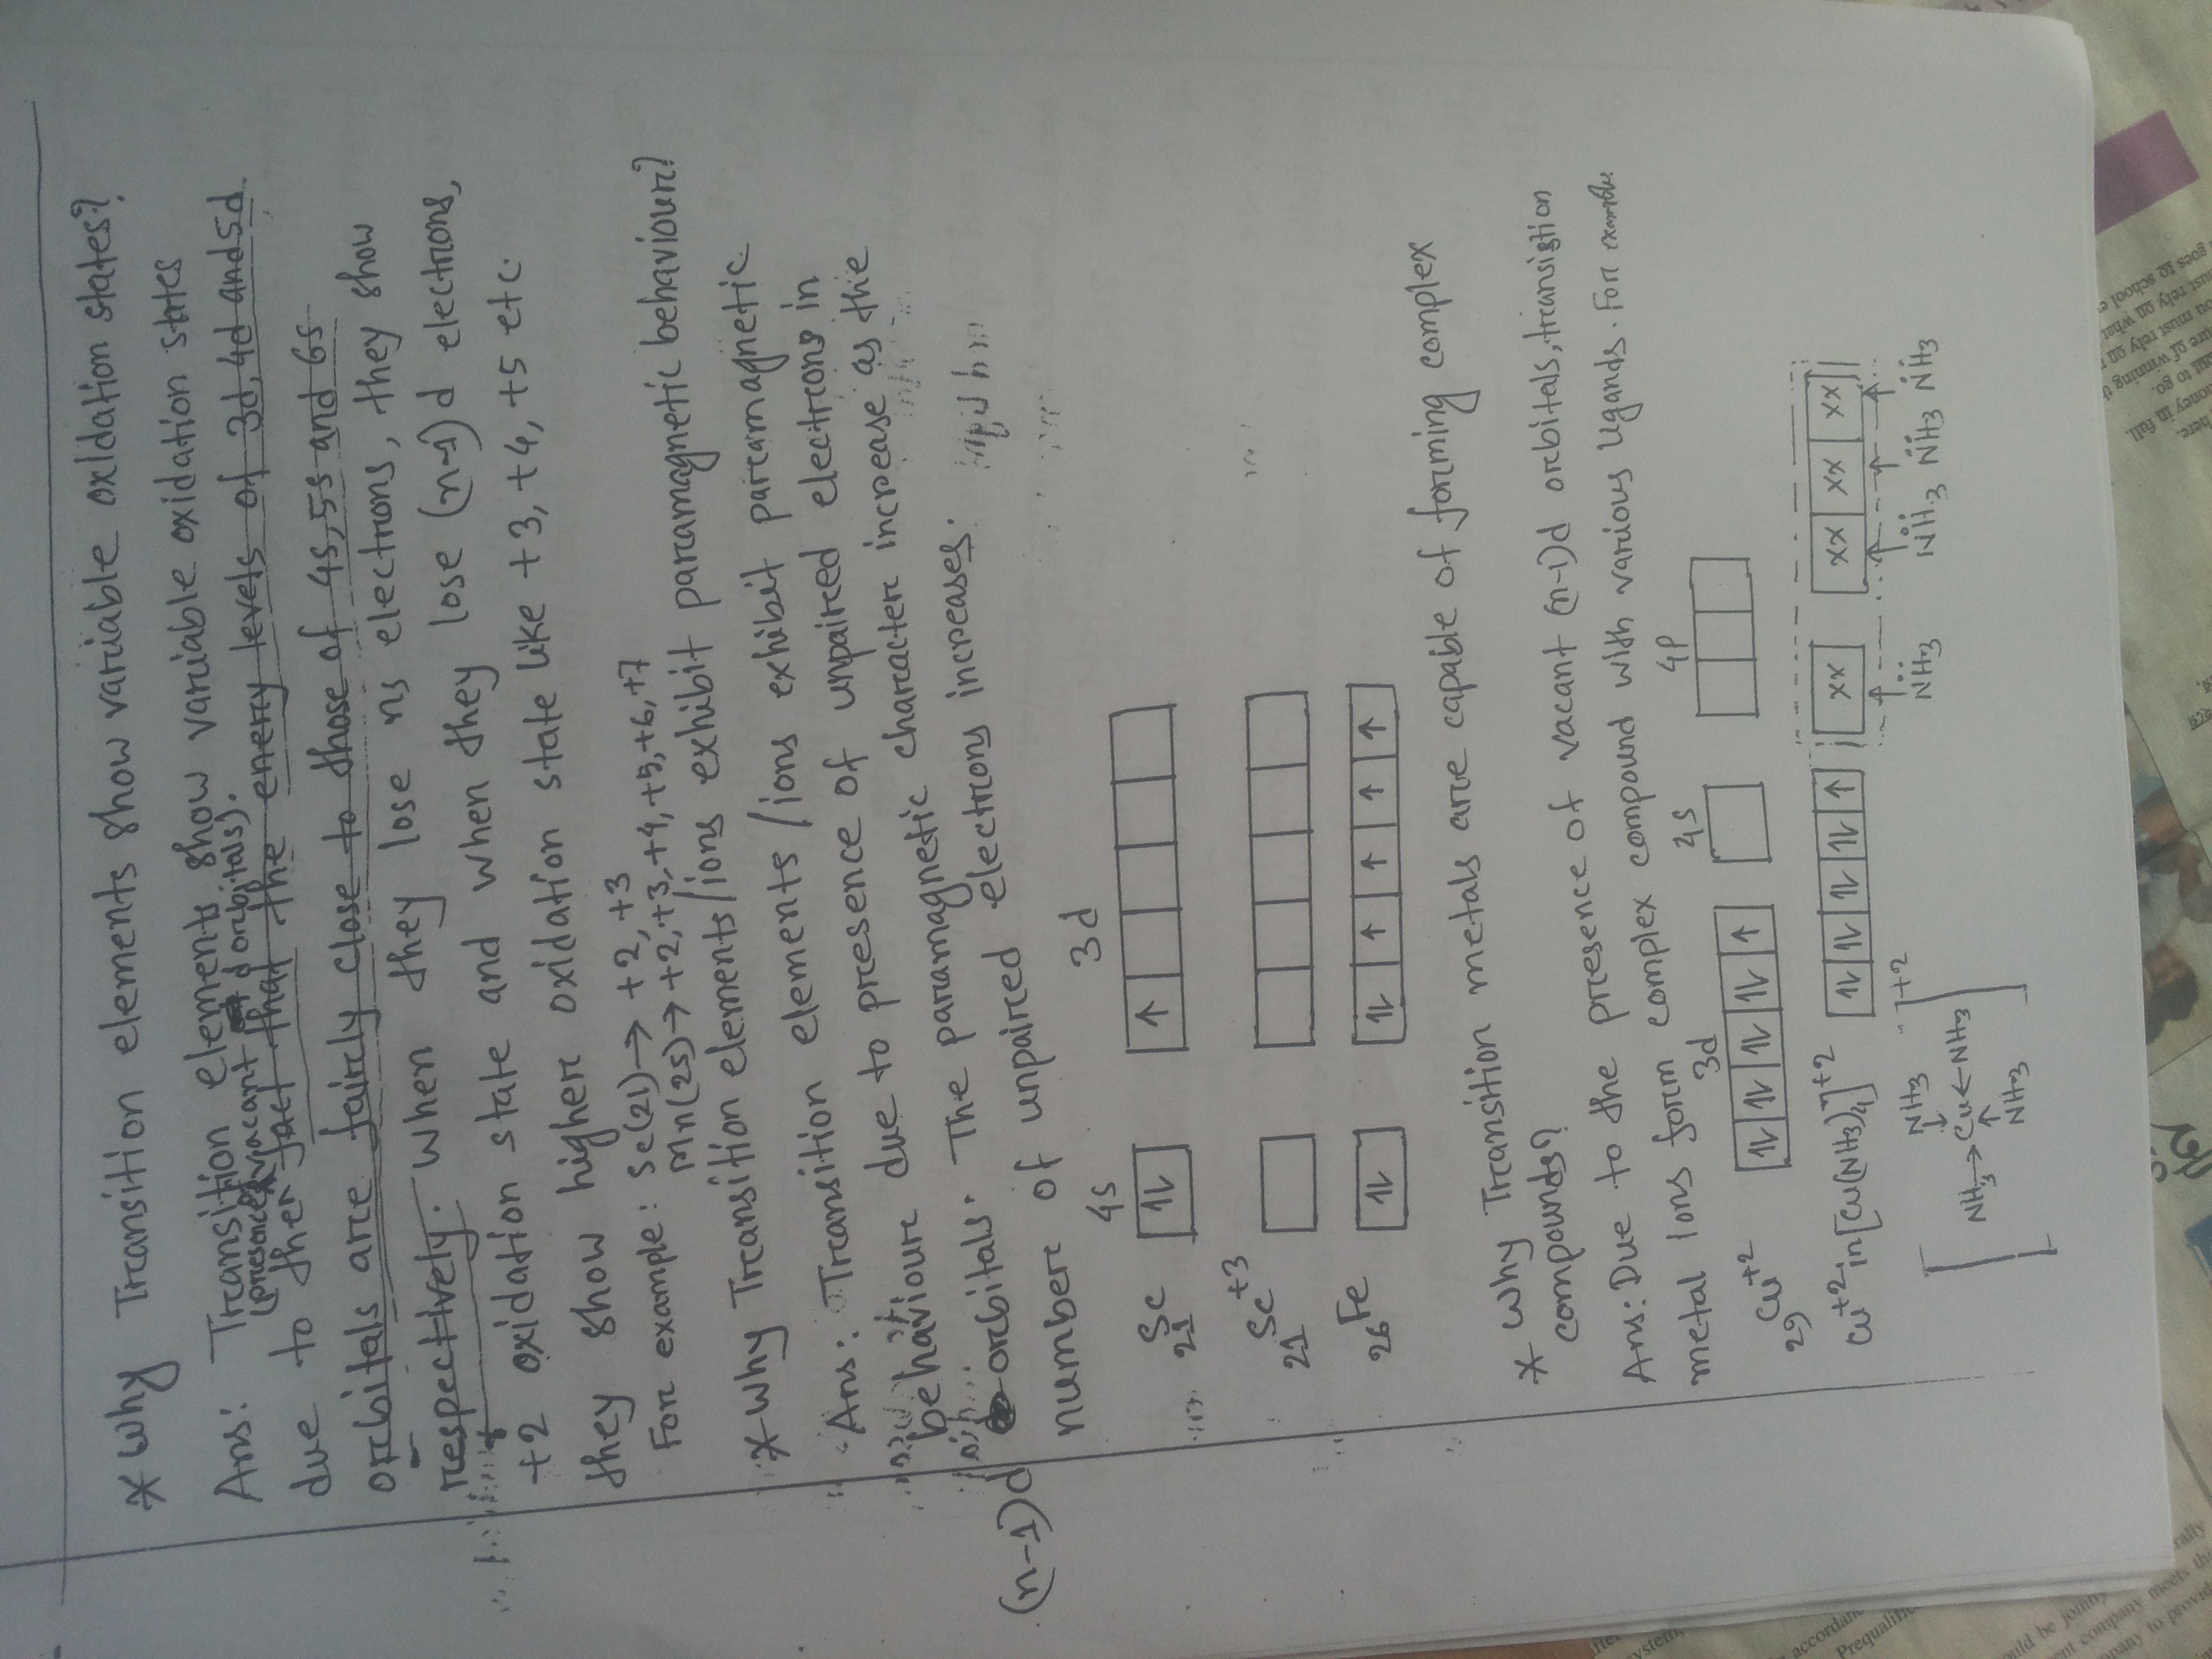 * Why Transition elements show variable oxidation states?
Ans: Transition elements show variable oxidation states
(presence of vacant d orbitals).
due to ther fact that the energy levels of 3d, 4d and 5d
orbitals are fairly close to those of 4s, 5s and 6s
respectively. When they lose ns electrons, they show
+2 oxidation state and when they lose (n-1)d electrons,
they show higher oxidation state like +3, +4, +5 etc.
For example: Sc(21) → +2, +3
Mn(25) → +2, +3, +4, +5, +6, +7
* Why Transition elements/ions exhibit paramagnetic behaviour?
Ans: Transition elements/ions exhibit paramagnetic
behaviour due to presence of unpaired electrons in
(n-1)d orbitals. The paramagnetic character increase as the
number of unpaired electrons increases.
4s 3d
21Sc ⥮ ↑
21Sc+3
26Fe ⥮ ⥮ ↑ ↑ ↑ ↑
* Why Transition metals are capable of forming complex
compounds?
Ans: Due to the presence of vacant (n-1)d orbitals, transistion
metal Ions form complex compound with various ligands. For example
3d 4s 4p
29Cu+2 ⥮ ⥮ ⥮ ⥮ ↑
Cu+2 in [Cu(NH3)4]+2 ⥮ ⥮ ⥮ ⥮ ↑ xx xx xx xx
N̈H3 N̈H3 N̈H3 N̈H3
NH3 +2
↓
[NH3 → Cu ← NH3]
↑
NH3